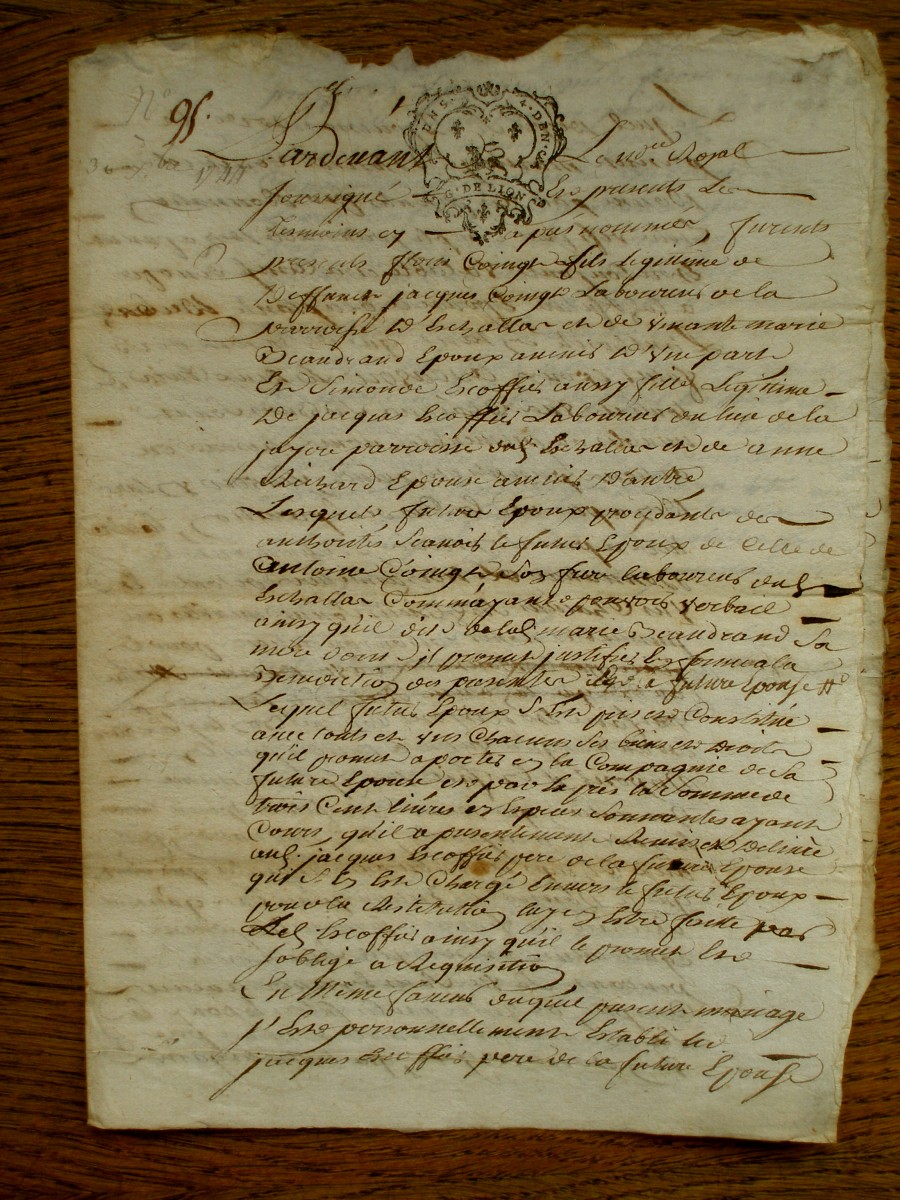 95.
PHS. 4. DEN.
G. DE LION
Pardevant Le no.re Royal
soussigné Et presents Les
temoins cy apres nommes, furents
presents fleuri Coingt fils Legitime de
Deffunct jacques Coingt Laboureur de la
parroisse D'Eschallas et de vivante marie
Beaudrand Epoux avenir D'Une part
Et Simonde Escoffier aussy fille Legitime
De jacques Escoffier Laboureur du lieu de la
parroisse dud Eschallas et de anne
Richard Epouse avenir D'autre
Lesquels futurs Epoux procedants des
authorités scavoir le futur Epoux de Celle de
antoine Coingt Son frere laboureur dud
Eschallas Comme ayant pouvoir verbail
ainsy qu'il dit de lad marie Beaudrand Sa
mere dont il promet justifier
Benediction des presentes future Epouse
Lequel futur Epoux S'est Constitué
avec touts et uns Chacuns Ses biens et Droits
qu'il promet aporter en la Compagnie de Sa
future Epouse et par la Somme de
trois Cent livres en Espèces Sonnantes ayant
Cours, qu'il a presentement Remis et Delivré
aud. jacques Escoffier pere de la future Epouse
qui S'en Est Chargé Envers le futur Epoux
pour la Restitution luy en Estre faite par
Led Escoffier ainsy qu'il le promet Et
s'oblige a Requisition
En Même faveur duquel present mariage
s'Est personnellement Establi led
jacques Escoffier pere de la future Epouse